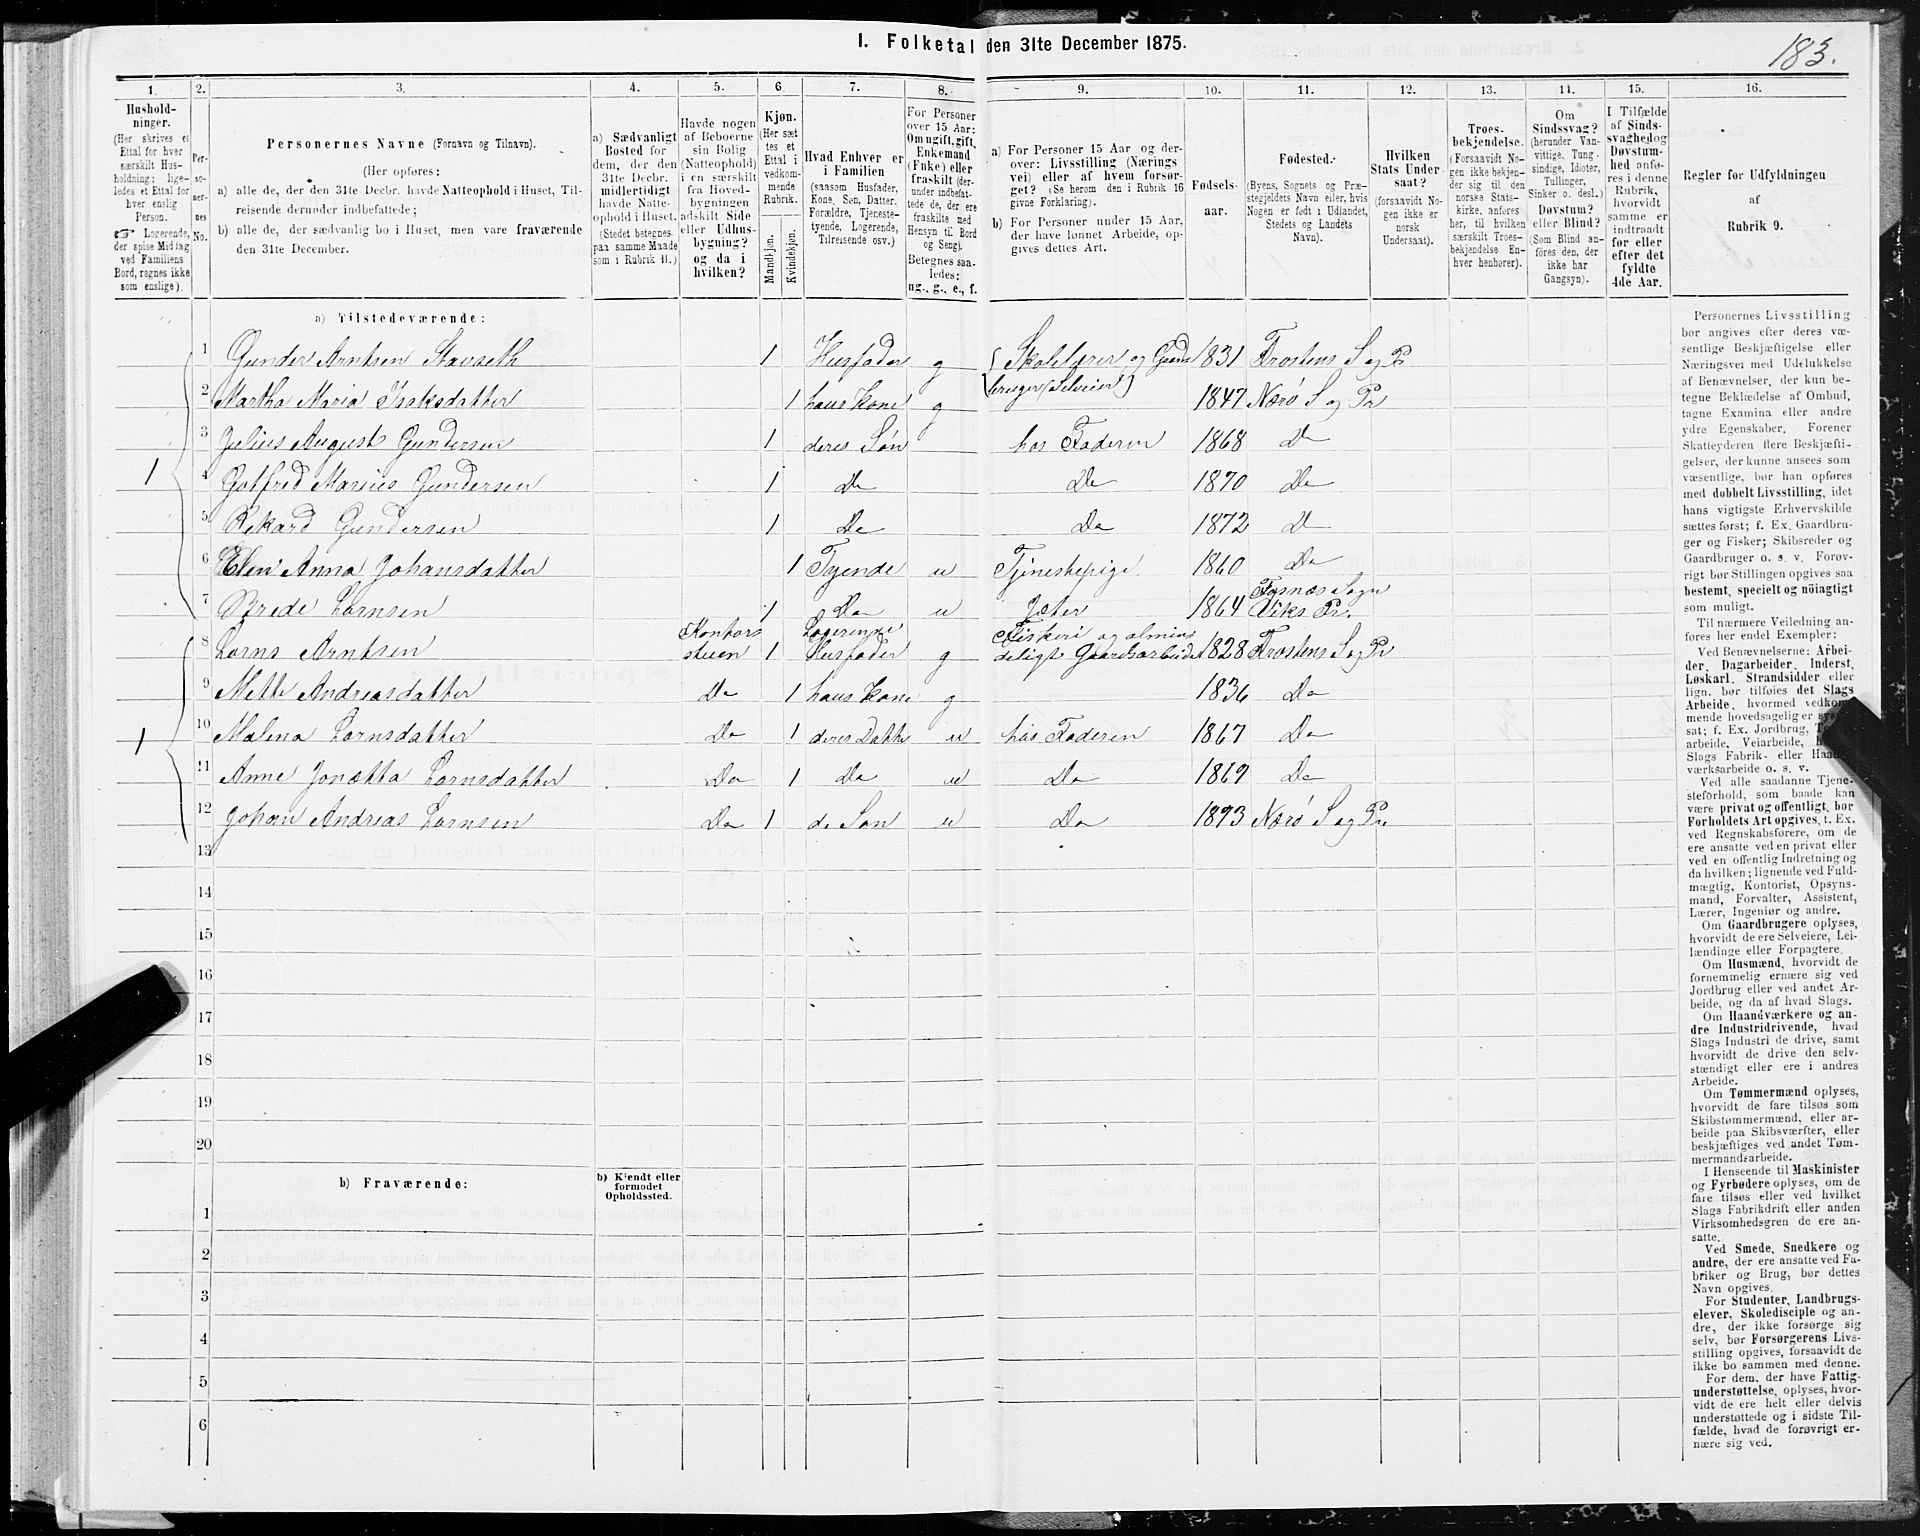 I. Folketal den 31te December 1875.
183.
1. 2. 3. 4. 5. 6. 7. 8. 9. 10. 11. 12. 13. 14. 15. 16.
Hushold-
ninger.
(Her skrives et
Ettal for hver
særskilt Hus-
holdning; lige-
ledes et Ettal for
hver enslig
Person.
☞ Logerende,
der spise Middag
ved Familiens
Bord, regnes ikke
som enslige).
Per-
so-
ner-
nes
No.
Personernes Navne (Fornavn og Tilnavn).
(Her opføres:
a) alle de, der den 31te Decbr. havde Natteophold i Huset, Til-
reisende derunder indbefattede;
b) alle de, der sædvanlig bo i Huset, men vare fraværende
den 31te December.
a) Sædvanligt
Bosted for
dem, der den
31te Decbr.
midlertidigt
havde Natte-
ophold i Huset.
(Stedet betegnes
paa samme Maade
som i Rubrik 11.)
Havde nogen
af Beboerne
sin Bolig
(Natteophold)
i en særskilt
fra Hoved-
bygningen
adskilt Side
eller Udhus-
bygning?
og da i
hvilken?
Kjøn.
(Her sæt-
tes et
Ettal i
vedkom-
mende
Rubrik.
Mandkjøn.
Kvindekjøn.
Hvad Enhver er
i Familien
(saasom Husfader,
Kone, Søn, Datter,
Forældre, Tjeneste-
tyende, Logerende,
Tilreisende osv.)
For Personer
over 15 Aar:
Om ugift, gift,
Enkemand
(Enke) eller
fraskilt (der-
under indbefat-
tede de, der ere
fraskilte med
Hensyn til Bord
og Seng).
Betegnes saa-
ledes:
ug., g., e., f.
a) For Personer 15 Aar og der-
over: Livsstilling (Nærings
vei) eller af hvem forsør-
get? (Se herom den i Rubrik 16
givne Forklaring).
b) For Personer under 15 Aar,
der have lønnet Arbeide, op-
gives dettes Art.
Fødsels-
aar.
Fødested.
(Byens, Sognets og Præ-
stegjeldets Navn eller, hvis
Nogen er født i Udlandet,
Stedets og Landets
Navn).
Hvilken
Stats Under-
saat?
(forsaavidt No-
gen ikke er
norsk
Undersaat).
Troes-
bekjendelse.
(Forsaavidt No-
gen ikke bekjen-
der sig til den
norske Stats-
kirke, anføres
her, til hvilken
særskilt Troes-
bekjendelse En-
hver henhører).
Om
Sindssvag?
(herunder Van-
vittige, Tung-
sindige, Idioter,
Tullinger,
Sinker o. desl.)
Døvstum?
eller Blind?
(Som Blind an-
føres den, der
ikke har
Gangsyn).
I Tilfælde
af Sinds-
svaghed og
Døvstum-
hed anfø-
res i denne
Rubrik,
hvorvidt
samme er
indtraadt
før eller
efter det
fyldte
4de Aar.
Regler for Udfyldningen
af
Rubrik 9.
a) Tilstedeværende:
1 Gunder Arntsen Stavseth 1 Husfader g Skolelærer og Gaard 1831 Frostens S og Pr
bruger (Selveier)
2 Martha Maria Isaksdatter 1 hans Kone g 1847 Nærø S og Pr
3 Julius August Gundersen 1 deres Søn hos Faderen 1868 D
1
4 Gotfred Marius Gundersen 1 Do Do 1870 Do
5 Rekard Gundersen 1 Do Do 1872 D
6 Elen Anna Johansdatter 1 Tyende u Tjenestepige 1860 Do
7 Brede Lornsen 1 Do u Jæter 1864 Fosnæs Sogn
Viks Pr.
8 Lorns Arntsen Kontors
stuen 1 Logerende
Husfader g Fiskeri og almin
deligt Gaardsarbeide 1828 Frostens S og Pr
9 Mette Andreasdatter Do 1 hans Kone g 1836 Do
1
10 Malena Lornsdatter Do 1 deres Datte u hos Faderen 1867 Do
11 Anne Jonetta Lornsdatter Do 1 Do u Do 1869 Do
12 Johan Andreas Lornsen Do 1 do Søn u Do 1873 Nærø S og Pr
13
14
15
16
17
18
19
20
b) Fraværende:
b) Kjendt eller
formodet
Opholdssted.
1
2
3
4
5
6
Personernes Livsstilling
bør angives efter deres væ-
sentlige Beskjæftigelse eller
Næringsvei med Udelukkelse
af Benævnelser, der kun be-
tegne Beklædelse af Ombud,
tagne Examina eller andre
ydre Egenskaber. Forener
Skatteyderen flere Beskjæfti-
gelser, der kunne ansees som
væsentlige, bør han opføres
med dobbelt Livsstilling, idet
hans vigtigste Erhvervskilde
sættes først; f. Ex. Gaardbru-
ger og Fisker; Skibsreder og
Gaardbruger o. s. v. Forøv-
rigt bør Stillingen opgives saa
bestemt, specielt og nøiagtigt
som muligt.
Til nærmere Veiledning an-
føres her endel Exempler:
Ved Benævnelserne: Arbei-
der, Dagarbeider, Inderst,
Løskarl, Strandsidder eller
lign. bør tilføies det Slags
Arbeide, hvormed vedkom-
mende hovedsagelig er syssel-
sat; f. Ex. Jordbrug,
arbeide, Veiarbeide,
Slags Fabrik- eller
værksarbeide o. s. v.
Ved alle saadanne Tjene-
steforhold, som baade kan
være privat og offentligt, bør
Forholdets Art opgives, t. Ex.
ved Regnskabsførere, om de
ere ansatte ved en privat eller
ved en offentlig Indretning og
da hvilken; lignende ved Fuld-
mægtig, Kontorist, Opsyns-
mand, Forvalter, Assistent,
Lærer, Ingeniør og andre.
Om Gaardbrugere oplyses,
hvorvidt de ere Selveiere, Lei-
lændinge eller Forpagtere.
Om Husmænd, hvorvidt de
fornemmelig ernære sig ved
Jordbrug eller ved andet Ar-
beide, og da af hvad Slags.
Om Haandværkere og an-
dre Industridrivende, hvad
Slags Industri de drive, samt
hvorvidt de drive den selv-
stændigt eller ere i andres
Arbeide.
Om Tømmermænd oplyses,
hvorvidt de fare tilsøs som
Skibstømmermænd, eller ar-
beide paa Skibsværfter, eller
beskjæftiges ved andet Tøm-
mermandsarbeide.
I Henseende til Maskinister
og Fyrbødere oplyses, om de
fare tilsøs eller ved hvilket
Slags Fabrikdrift eller anden
Virksomhedsgren de ere an-
satte.
Ved Smede, Snedkere og
andre, der ere ansatte ved Fa-
briker og Brug, bør dettes
Navn opgives.
For Studenter, Landbrugs-
elever, Skoledisciple og an-
dre, der ikke forsørge sig
selv, bør Forsørgerens Livs-
stilling opgives, forsaavidt de
ikke bo sammen med denne.
For dem, der have Fattig-
understøttelse, oplyses, hvor-
vidt de ere helt eller delvis
understøttede og i sidste Til-
fælde, hvad de forøvrigt er-
nære sig ved.